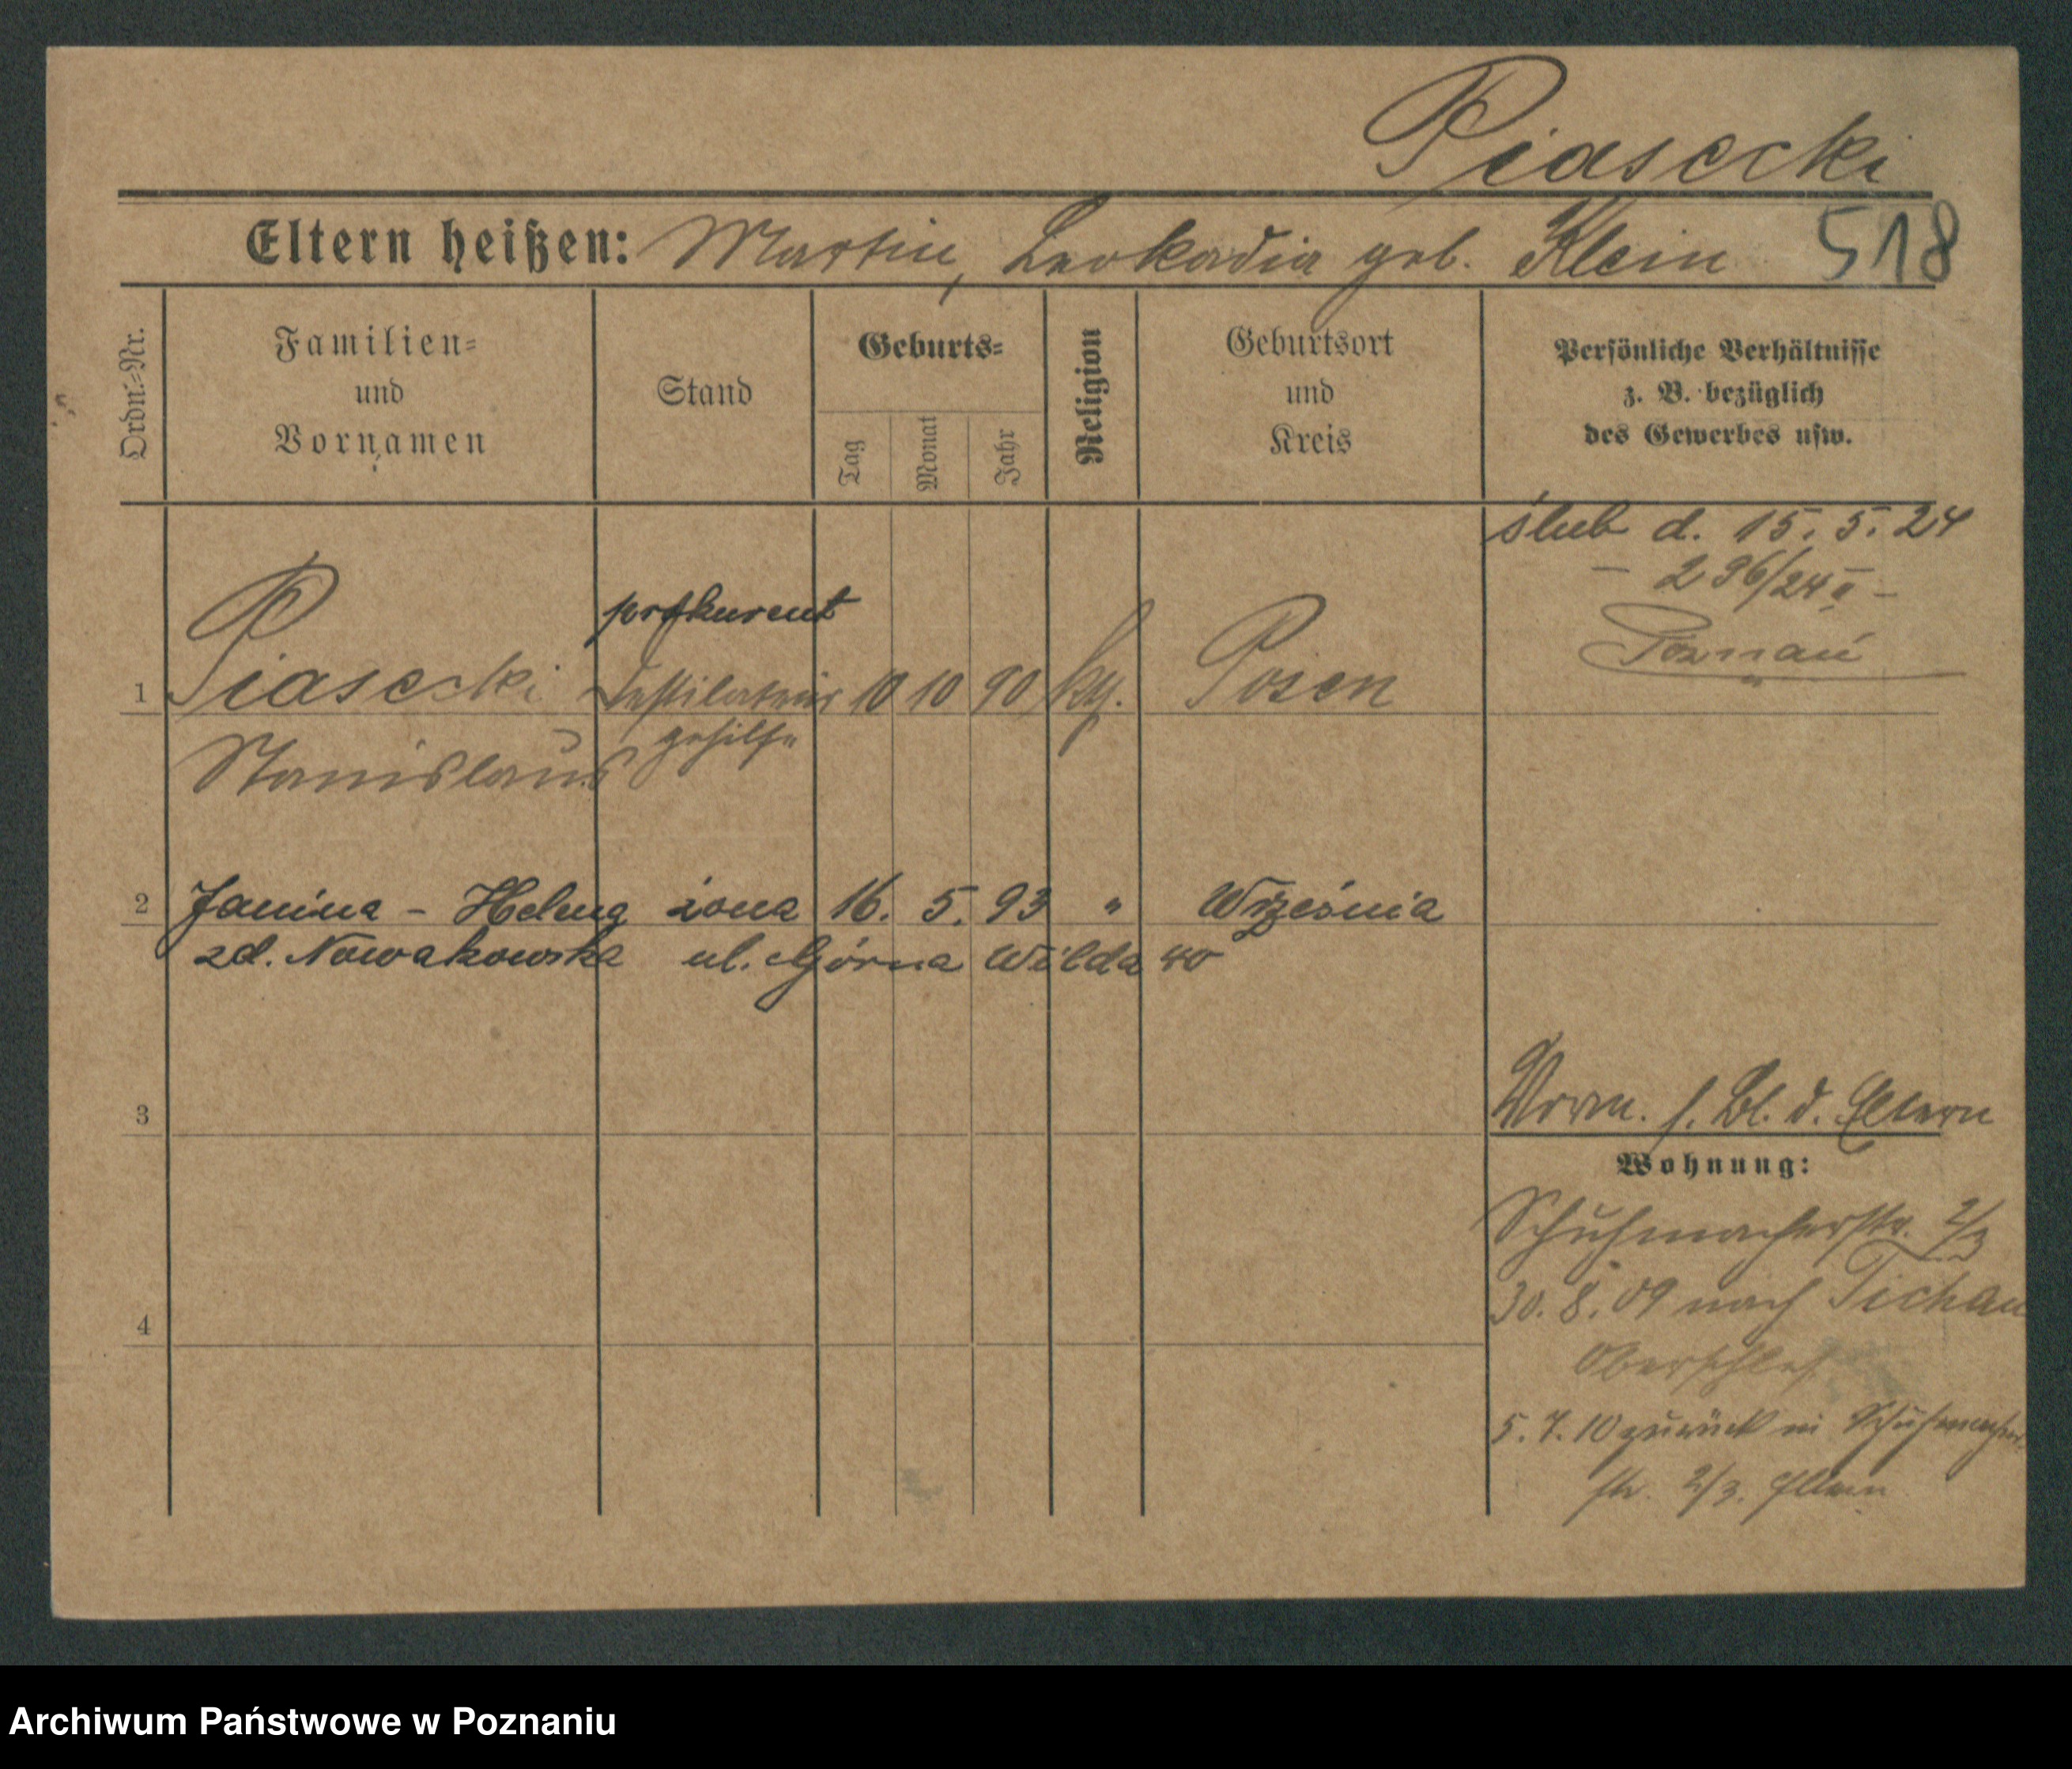 Piasecki
Eltern heißen: Martin, Leokadia geb. Klein 518
Ordn.-Nr.
Familien-
und
Vornamen
Stand
Geburts-
Tag
Monat
Jahr
Religion
Geburtsort
und
Kreis
Persönliche Verhältnisse
z. B. bezüglich
des Gewerbes usw.
ślub d. 15. 5. 24
– 296/24 –
Poznań
prokurent
1 Piasecki Destilateur 10 10 90 kg. Posen
gehilfe
Stanislaus
2 Janina - Helena żona 16. 5. 93 " Września
zd. Nowakowska ul. Górna Wilda 40
3
Vorm. s. Bl. d. Eltern
Wohnung:
Schuhmacherstr. 2/3
30. 8. 09 nach Tichau
4
Oberschles.
5. 7. 10 zurück in Schuhmacher
str. 2/3. Eltern
Archiwum Państwowe w Poznaniu